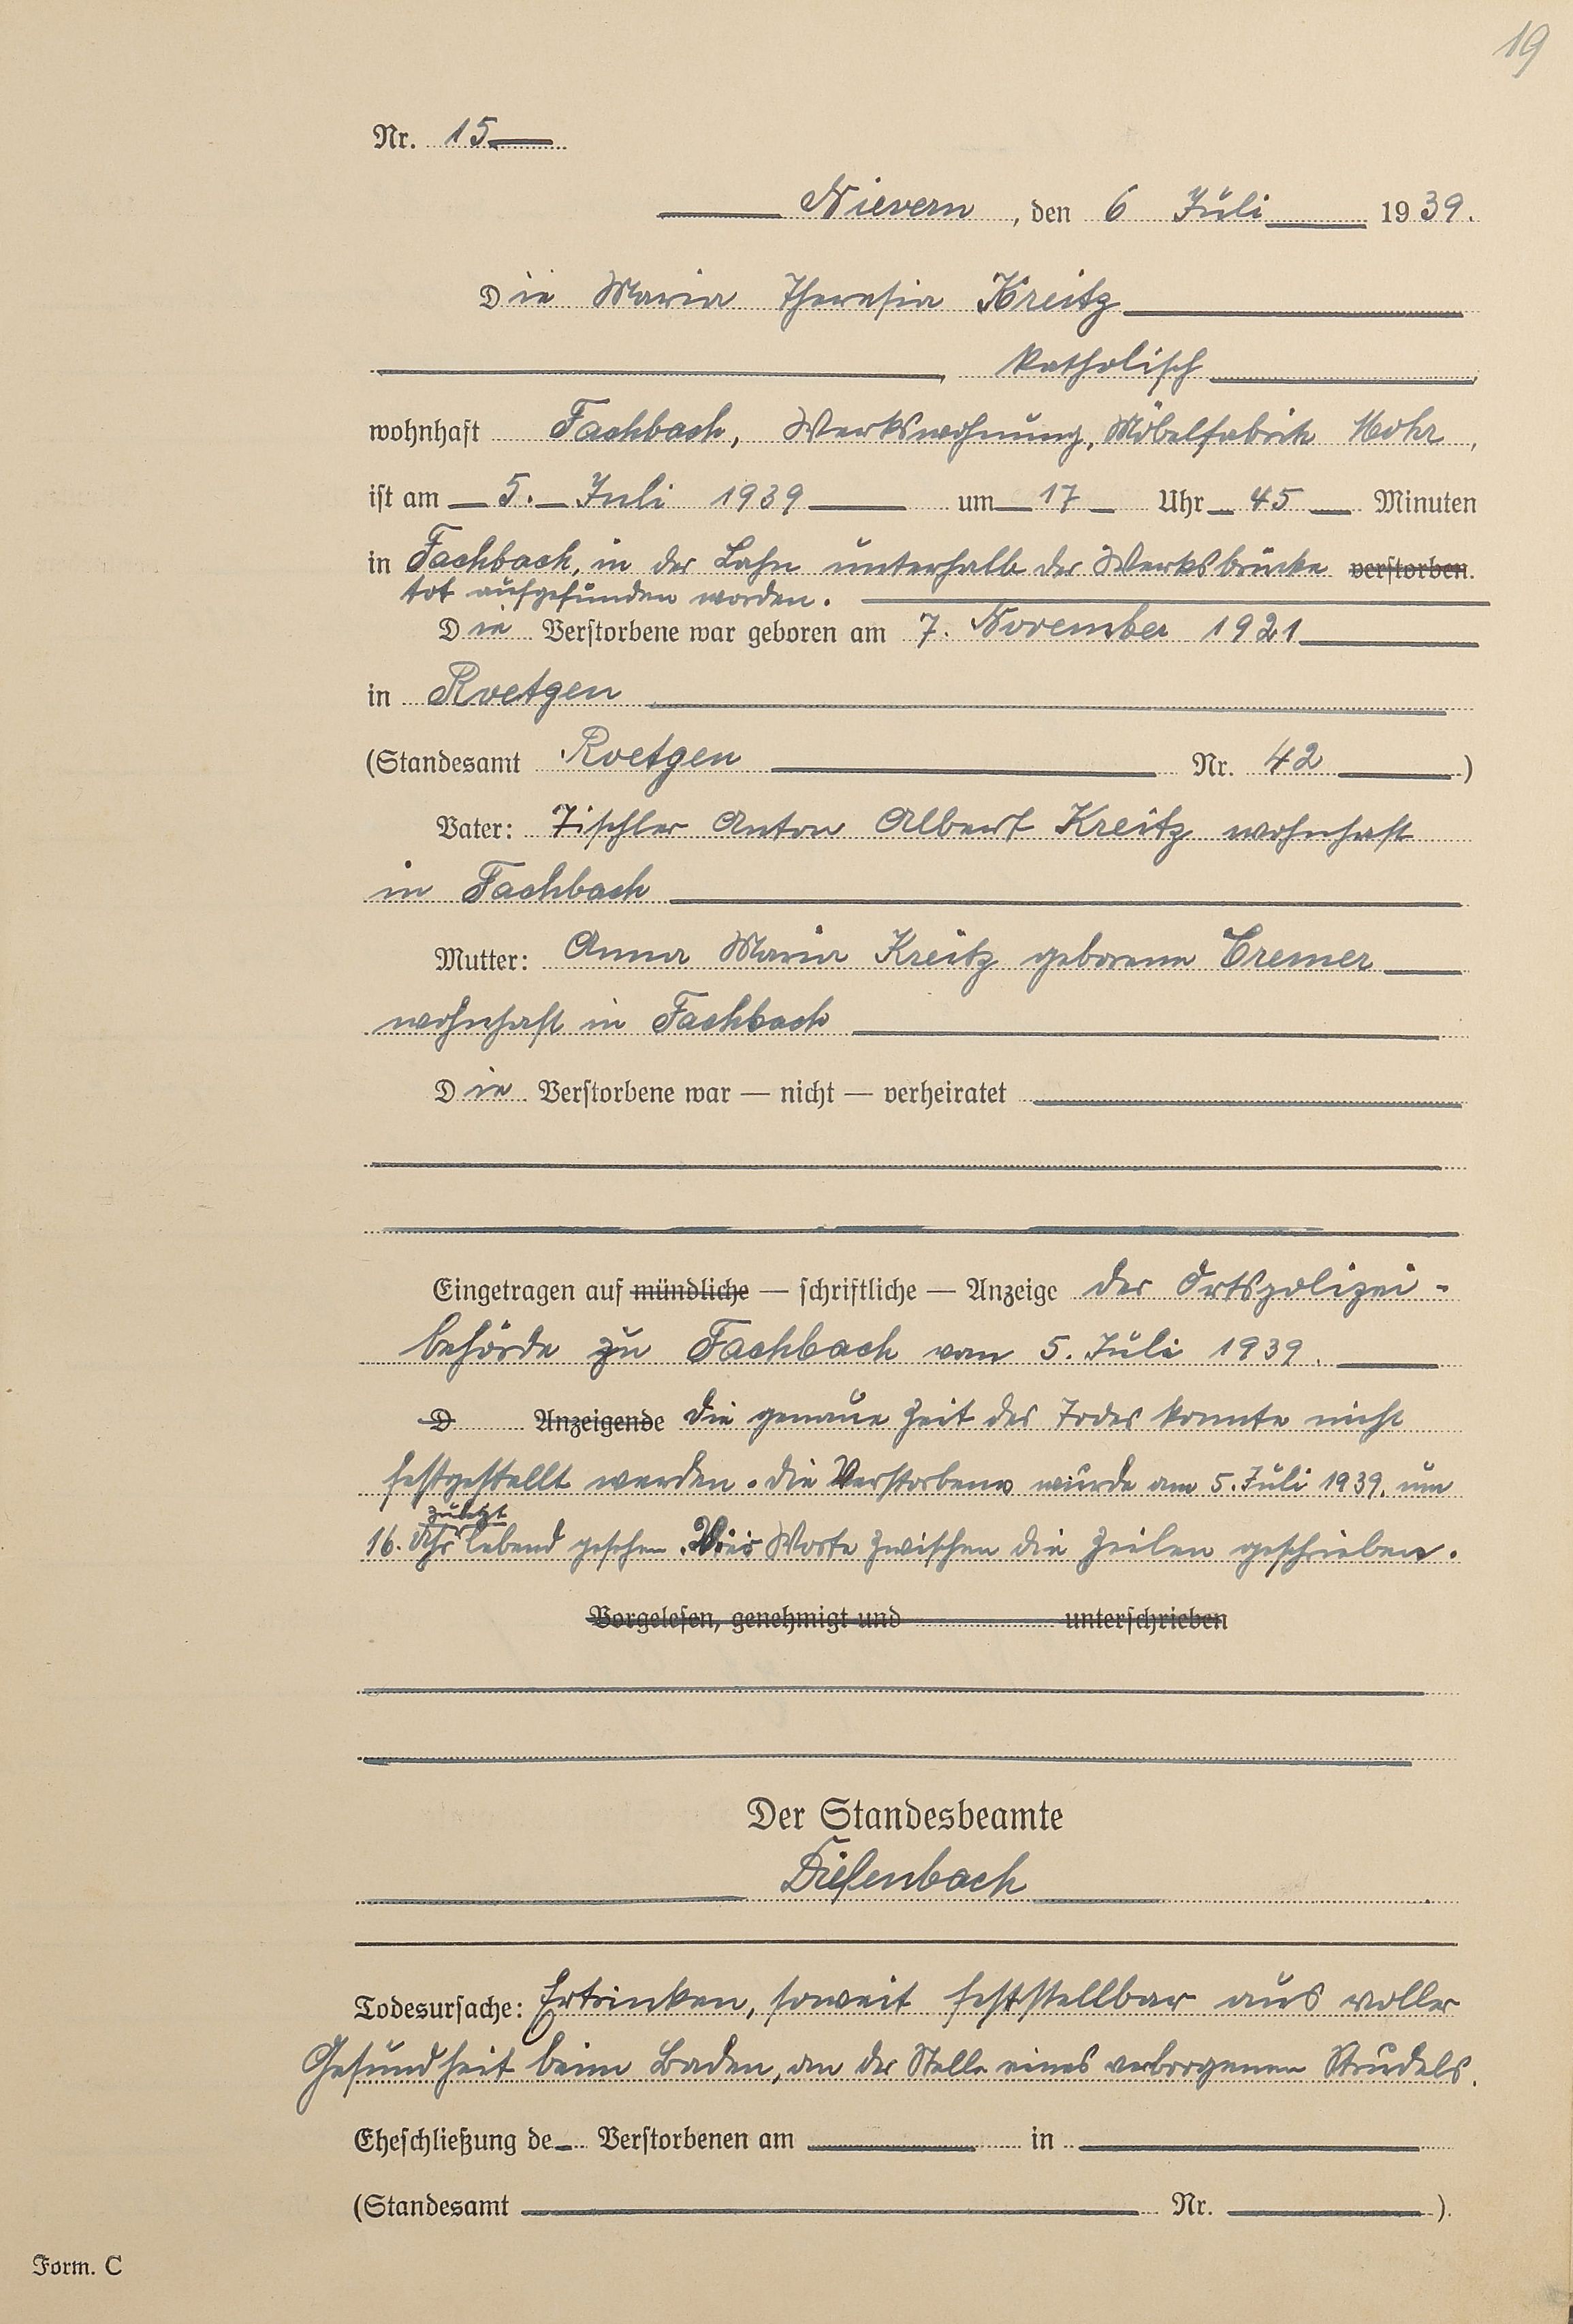 19
Nr. 15
Nievern, den 6 Juli 1939.
Die Maria Theresia Kreitz
, katholisch,
wohnhaft Fachbach, Werkswohnung, Möbelfabrik Mohr,
ist am 5. Juli 1939 um 17 Uhr 45 Minuten
in Fachbach, in der Lahn unterhalb der Werksbrücke verstorben.
tot aufgefunden worden.
Die Verstorbene war geboren am 7. November 1921
in Roetgen
(Standesamt Roetgen Nr. 42)
Vater: Tischler Anton Albert Kreitz wohnhaft
in Fachbach
Mutter: Anna Maria Kreitz geborene Cremer
wohnhaft in Fachbach
Die Verstorbene war — nicht — verheiratet
Eingetragen auf mündliche — schriftliche — Anzeige der Ortspolizei-
behörde zu Fachbach vom 5. Juli 1939.
D Anzeigende Die genaue Zeit des Todes konnte nicht
festgestellt werden. Die Verstorbene wurde am 5. Juli 1939. um
zuletzt
16. Uhr lebend gesehen. Vier Worte zwischen die Zeilen geschrieben.
Vorgelesen, genehmigt und unterschrieben
Der Standesbeamte
Diefenbach
Todesursache: Ertrinken, soweit feststellbar aus voller
Gesundheit beim Baden, an der Stelle eines verborgenen Strudels.
Eheschließung de Verstorbenen am in
(Standesamt Nr. ).
Form. C